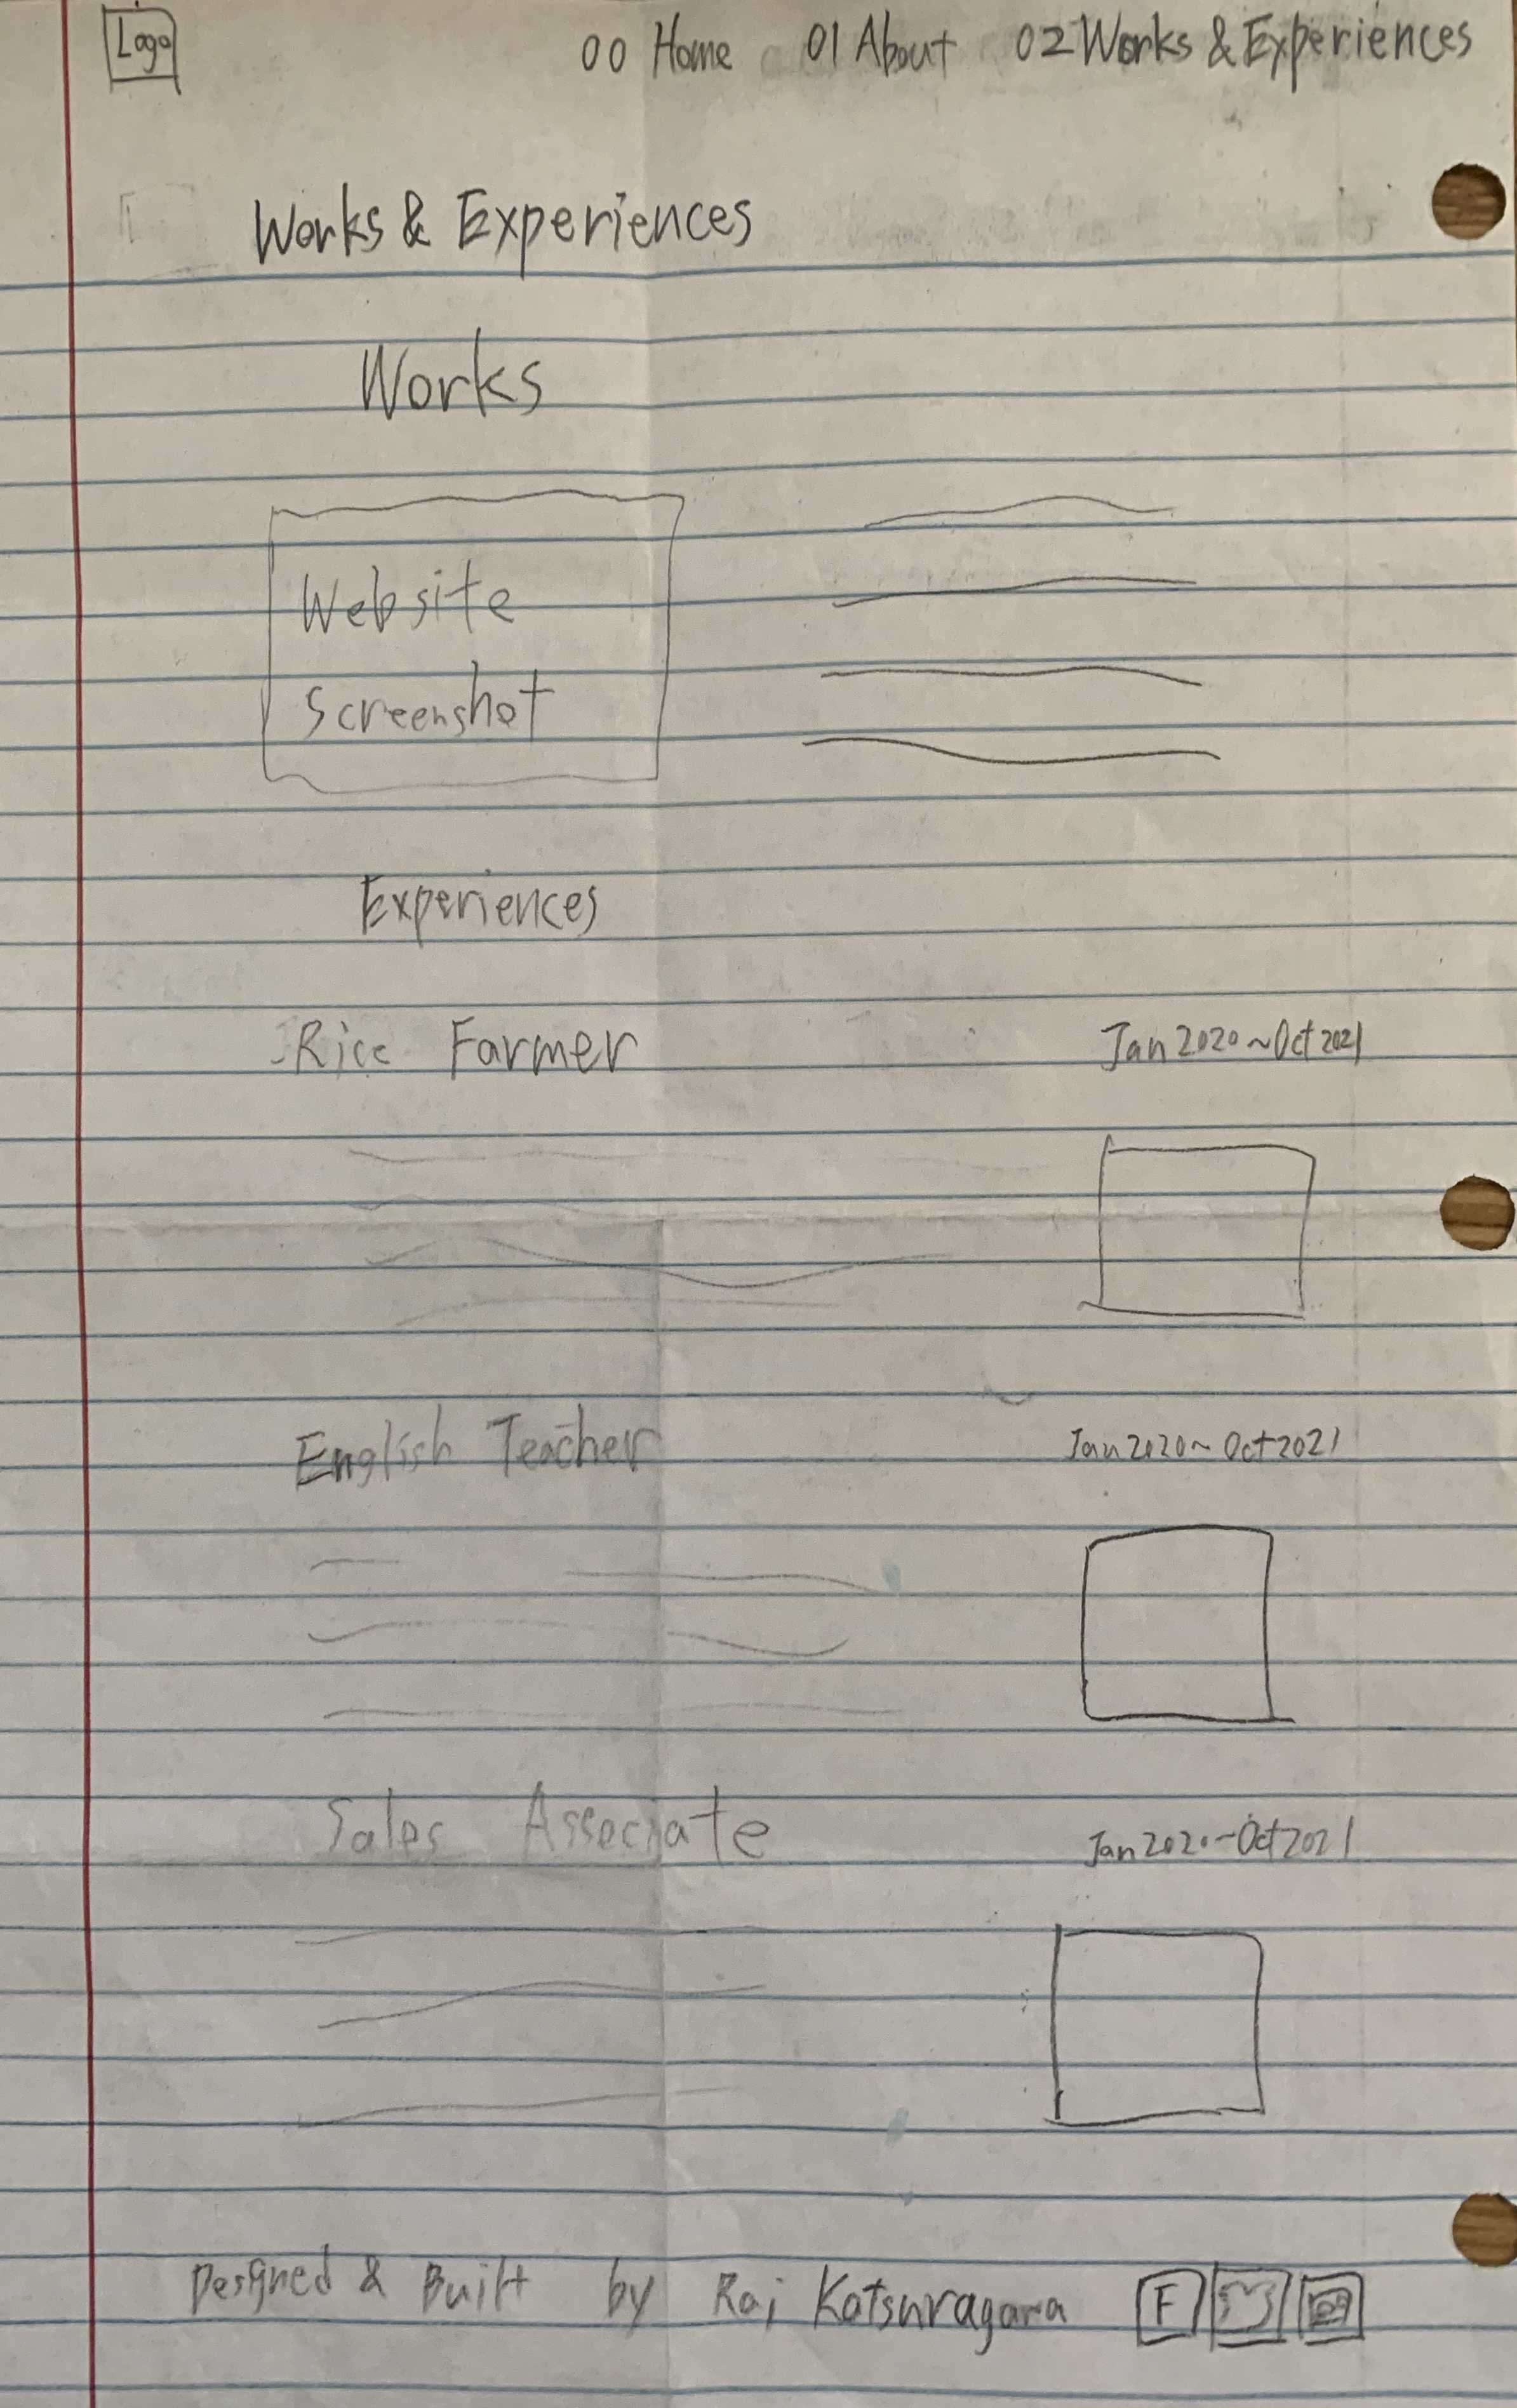 Logo
00 Home 01 About 02 Works & Experiences
Works & Experiences
Works
Website
Screenshot
Experiences
Rice Farmer Jan 2020~Oct 2021
English Teacher Jan 2020~Oct 2021
Sales Associate Jan 2020~Oct 2021
Designed & Built by Rai Katsuragawa F